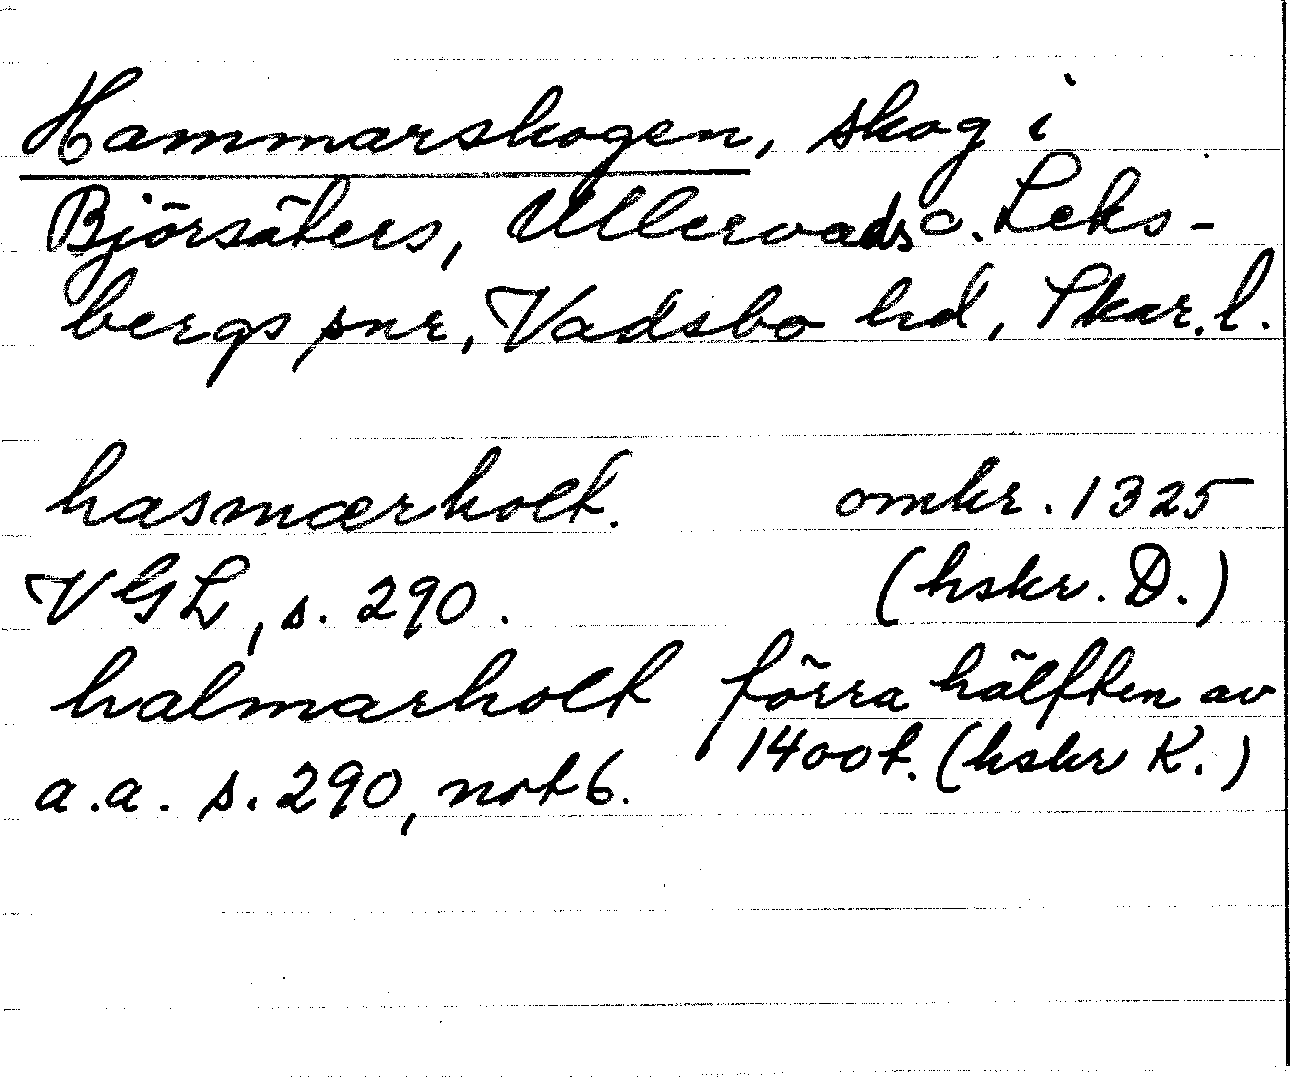 Hammarskogen, skog i
Björsäters, Ullervads o. Leks-
bergs snr, Vadsbo hd, Skar. l.
hasmærholt. omkr. 1325
VGL, s. 290. (hskr. D.)
halmarholt förra hälften av
1400t. (hskr K.)
a.a. s. 290, not 6.